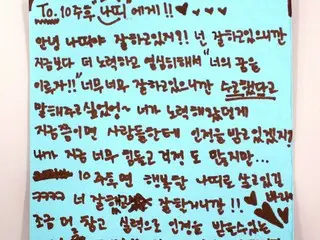 To. 10주후 나띠 에게!!
안녕 나띠야 잘하고있지?! 넌 잘하고있으니깐
지금보다 더 노력하고 열심히해서 "너의 꿈을
이루자!!" 너무너무 잘하고있으니깐 수고했다고
말해주고싶었엉~ 너가 노력해왔던게
지금쯤이면 사람들한테 인정을 받고있겠지?
내가 지금 너무 힘들고 걱정 도 많지만...
10주뒤면 행복한 나띠로 살고있길 바래
넌 잘했고 잘할거니깐!!
조금 더 참고 실력으로 인정을 받을수있는